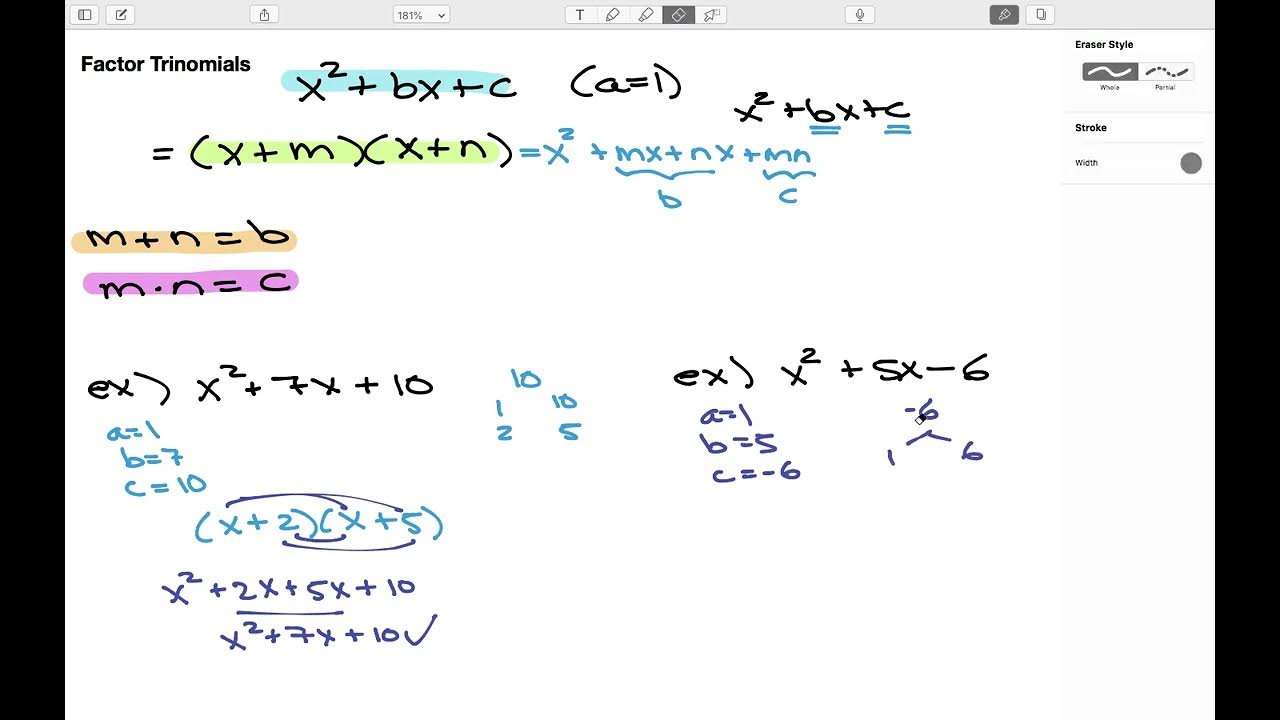 181%
T
Factor Trinomials
x² + bx + c (a=1)
x² + bx + c
= (x + m)(x + n) = x² + mx + nx + mn
b c
m + n = b
m · n = c
ex) x² + 7x + 10
a=1
b=7
c = 10
10
1 10
2 5
(x + 2)(x + 5)
x² + 2x + 5x + 10
x² + 7x + 10 ✓
ex) x² + 5x - 6
a=1
b=5
c = -6
-6
1 6
Eraser Style
Whole Partial
Stroke
Width